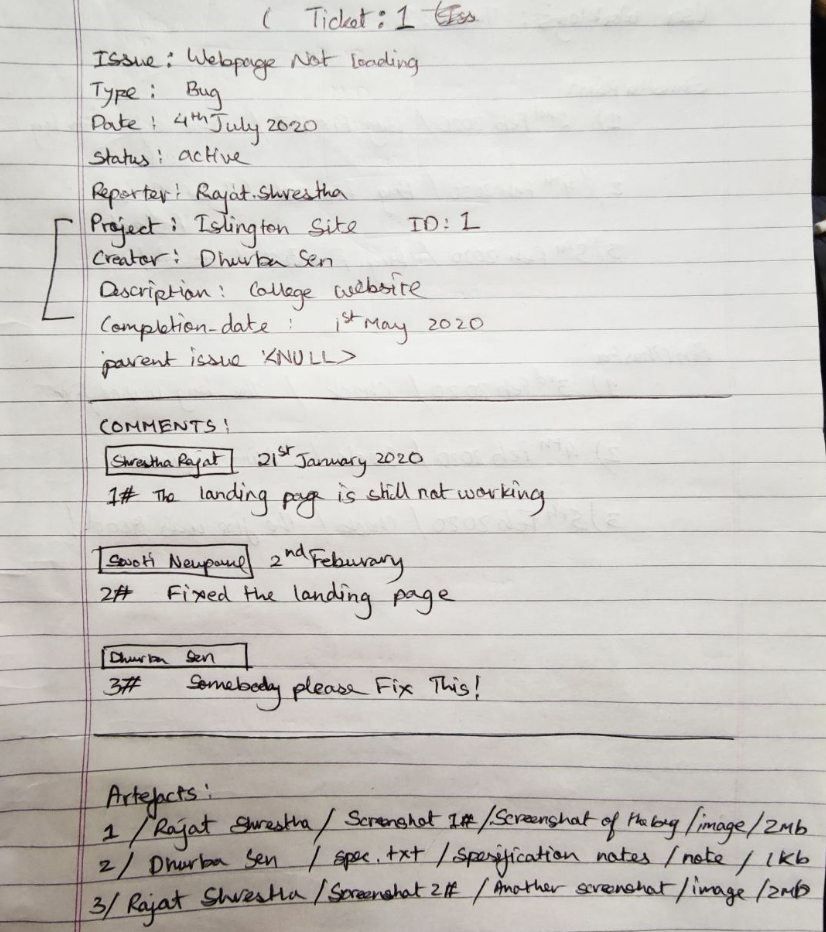 ( Ticket: 1
Issue: Webpage Not loading
Type: Bug
Date: 4th July 2020
Status: active
Reporter: Rajat.Shrestha
Project: Islington Site ID: 1
Creator: Dhurba Sen
Description: College website
Completion-date: 1st May 2020
parent issue <NULL>
COMMENTS:
Shrestha Rajat 21st January 2020
1# The landing page is still not working
Neupane 2nd Feburary
2# Fixed the landing page
Dhurba Sen
3# Somebody please Fix This!
Artefacts:
1 / Rajat Shrestha / Screenshot 1# / Screenshot of the bug / image / 2Mb
2 / Dhurba Sen / spec.txt / Spesification notes / note / 1Kb
3/ Rajat Shrestha / Screenshot 2# / Another screenshot / image / 2Mb